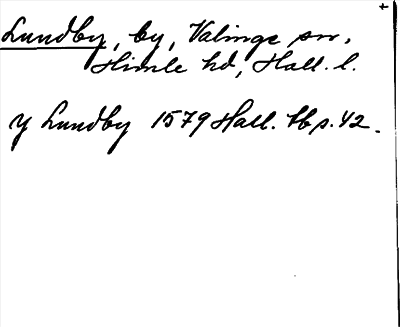 Lundby, by, Valinge sn,
Himle hd, Hall. l.
y Lundby 1579 Hall. tb s. 42.